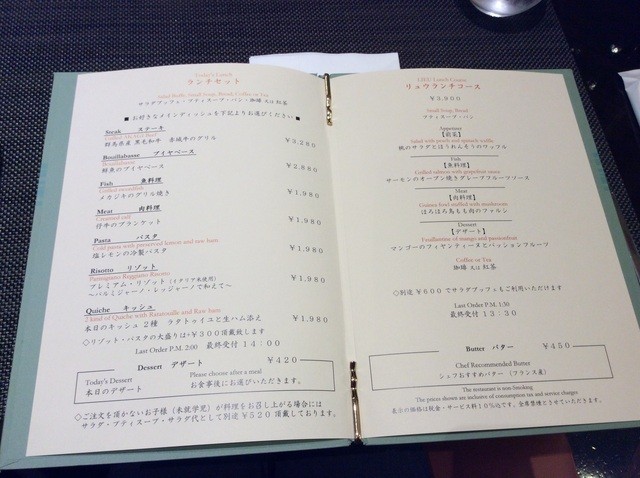 ランチセット
Salad Buffe, Small Soup, Bread, Coffee or Tea
サラダブッフェ・プティスープ・パン・珈琲 又は 紅茶
■ お好きなメインディッシュを下記よりお選びください ■
Steak ステーキ
群馬県産 黒毛和牛 赤城牛のグリル ¥3,280
Bouillabaisse ブイヤベース
Bouillabaisse
鮮魚のブイヤベース ¥2,880
Fish 魚料理
Grilled swordfish
メカジキのグリル焼き ¥1,980
Meat 肉料理
Creamed calf
仔牛のブランケット ¥1,980
Pasta パスタ
Cold pasta with preserved lemon and raw ham
塩レモンの冷製パスタ ¥1,980
Risotto リゾット
Parmigiano Reggiano Risotto
プレミアム・リゾット(イタリア米使用)
～パルミジャーノ・レッジャーノで和えて～ ¥1,980
Quiche キッシュ
2 kind of Quiche with Ratatouille and Raw ham
本日のキッシュ2種 ラタトゥイユと生ハム添え ¥1,980
◇リゾット・パスタの大盛りは+¥300頂戴致します
Last Order P.M. 2:00 最終受付 14:00
Dessert デザート ¥420
Today's Dessert Please choose after a meal
本日のデザート お食事後にお選びいただきます。
◇ご注文を頂かないお子様(未就学児)が料理をお召し上がる場合には
サラダ・プティスープ・サラダ代として別途¥520頂戴しております。
リュウランチコース
¥3,900
Small Soup, Bread
プティスープ・パン
Appetizer
【前菜】
Salad with peach and spinach waffle
桃のサラダとほうれんそうのワッフル
Fish
【魚料理】
Grilled salmon with grapefruit sauce
サーモンのオーブン焼きグレープフルーツソース
Meat
【肉料理】
Guinea fowl stuffed with mushroom
ほろほろ鳥もも肉のファルシ
Dessert
【デザート】
Feuillantine of mango and passionfruit
マンゴーのフィヤンティーヌとパッションフルーツ
Coffee or Tea
珈琲 又は 紅茶
◇別途¥600でサラダブッフェもご利用いただけます
Last Order P.M. 1:30
最終受付 13:30
Butter バター ¥450
Chef Recommended Butter
シェフおすすめバター (フランス産)
The restaurant is non-Smoking
The prices shown are inclusive of consumption tax and service charges
表示の価格は税金・サービス料10%込です。全席禁煙とさせていただきます。